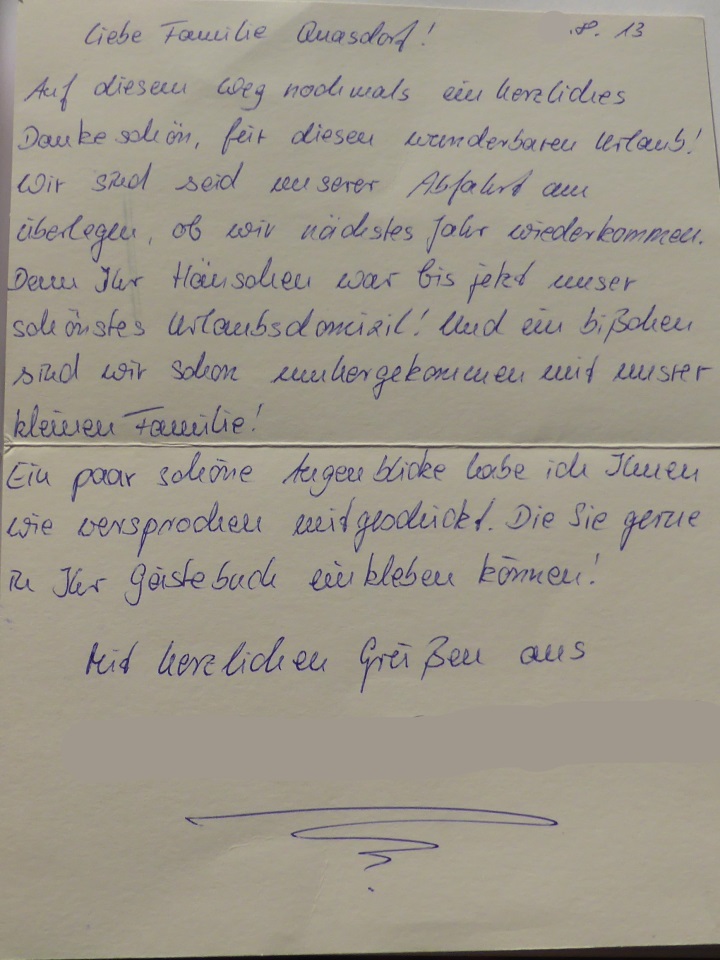 Liebe Familie Quasdorf! .8. 13
Auf diesem Weg nochmals ein herzliches
Dankeschön, für diesen wunderbaren Urlaub!
Wir sind seid unserer Abfahrt am
überlegen, ob wir nächstes Jahr wiederkommen.
Denn Ihr Häuschen war bis jetzt unser
schönstes Urlaubsdomizil! Und ein bißchen
sind wir schon umhergekommen mit unsrer
kleinen Familie!
Ein paar schöne Augenblicke habe ich Ihnen
wie versprochen mitgeschickt. Die Sie gerne
in Ihr Gästebuch einkleben können!
Mit herzlichen Grüßen aus